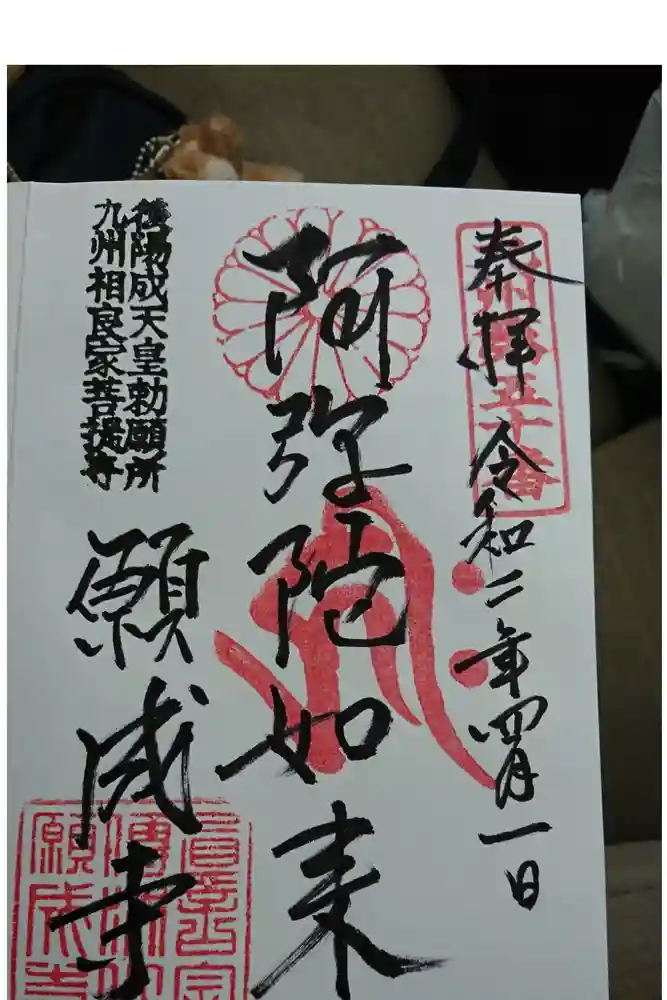 奉拝 令和二年四月一日
九州 五十番
阿弥陀如来
後陽成天皇勅願所
九州相良家菩提寺
願成寺